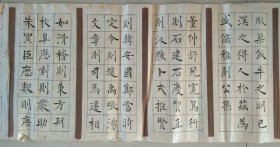 版築飯牛之朋已
漢之得人於茲為
盛儒雅則公孫弘
董仲舒兒寬篤行
則石建石慶質直
則汲黯卜式推賢
則韓安國鄭當時
定令則趙禹張湯
文章則司馬遷相
如滑稽則東方朔
枚皋應對則嚴助
朱買臣曆數則唐